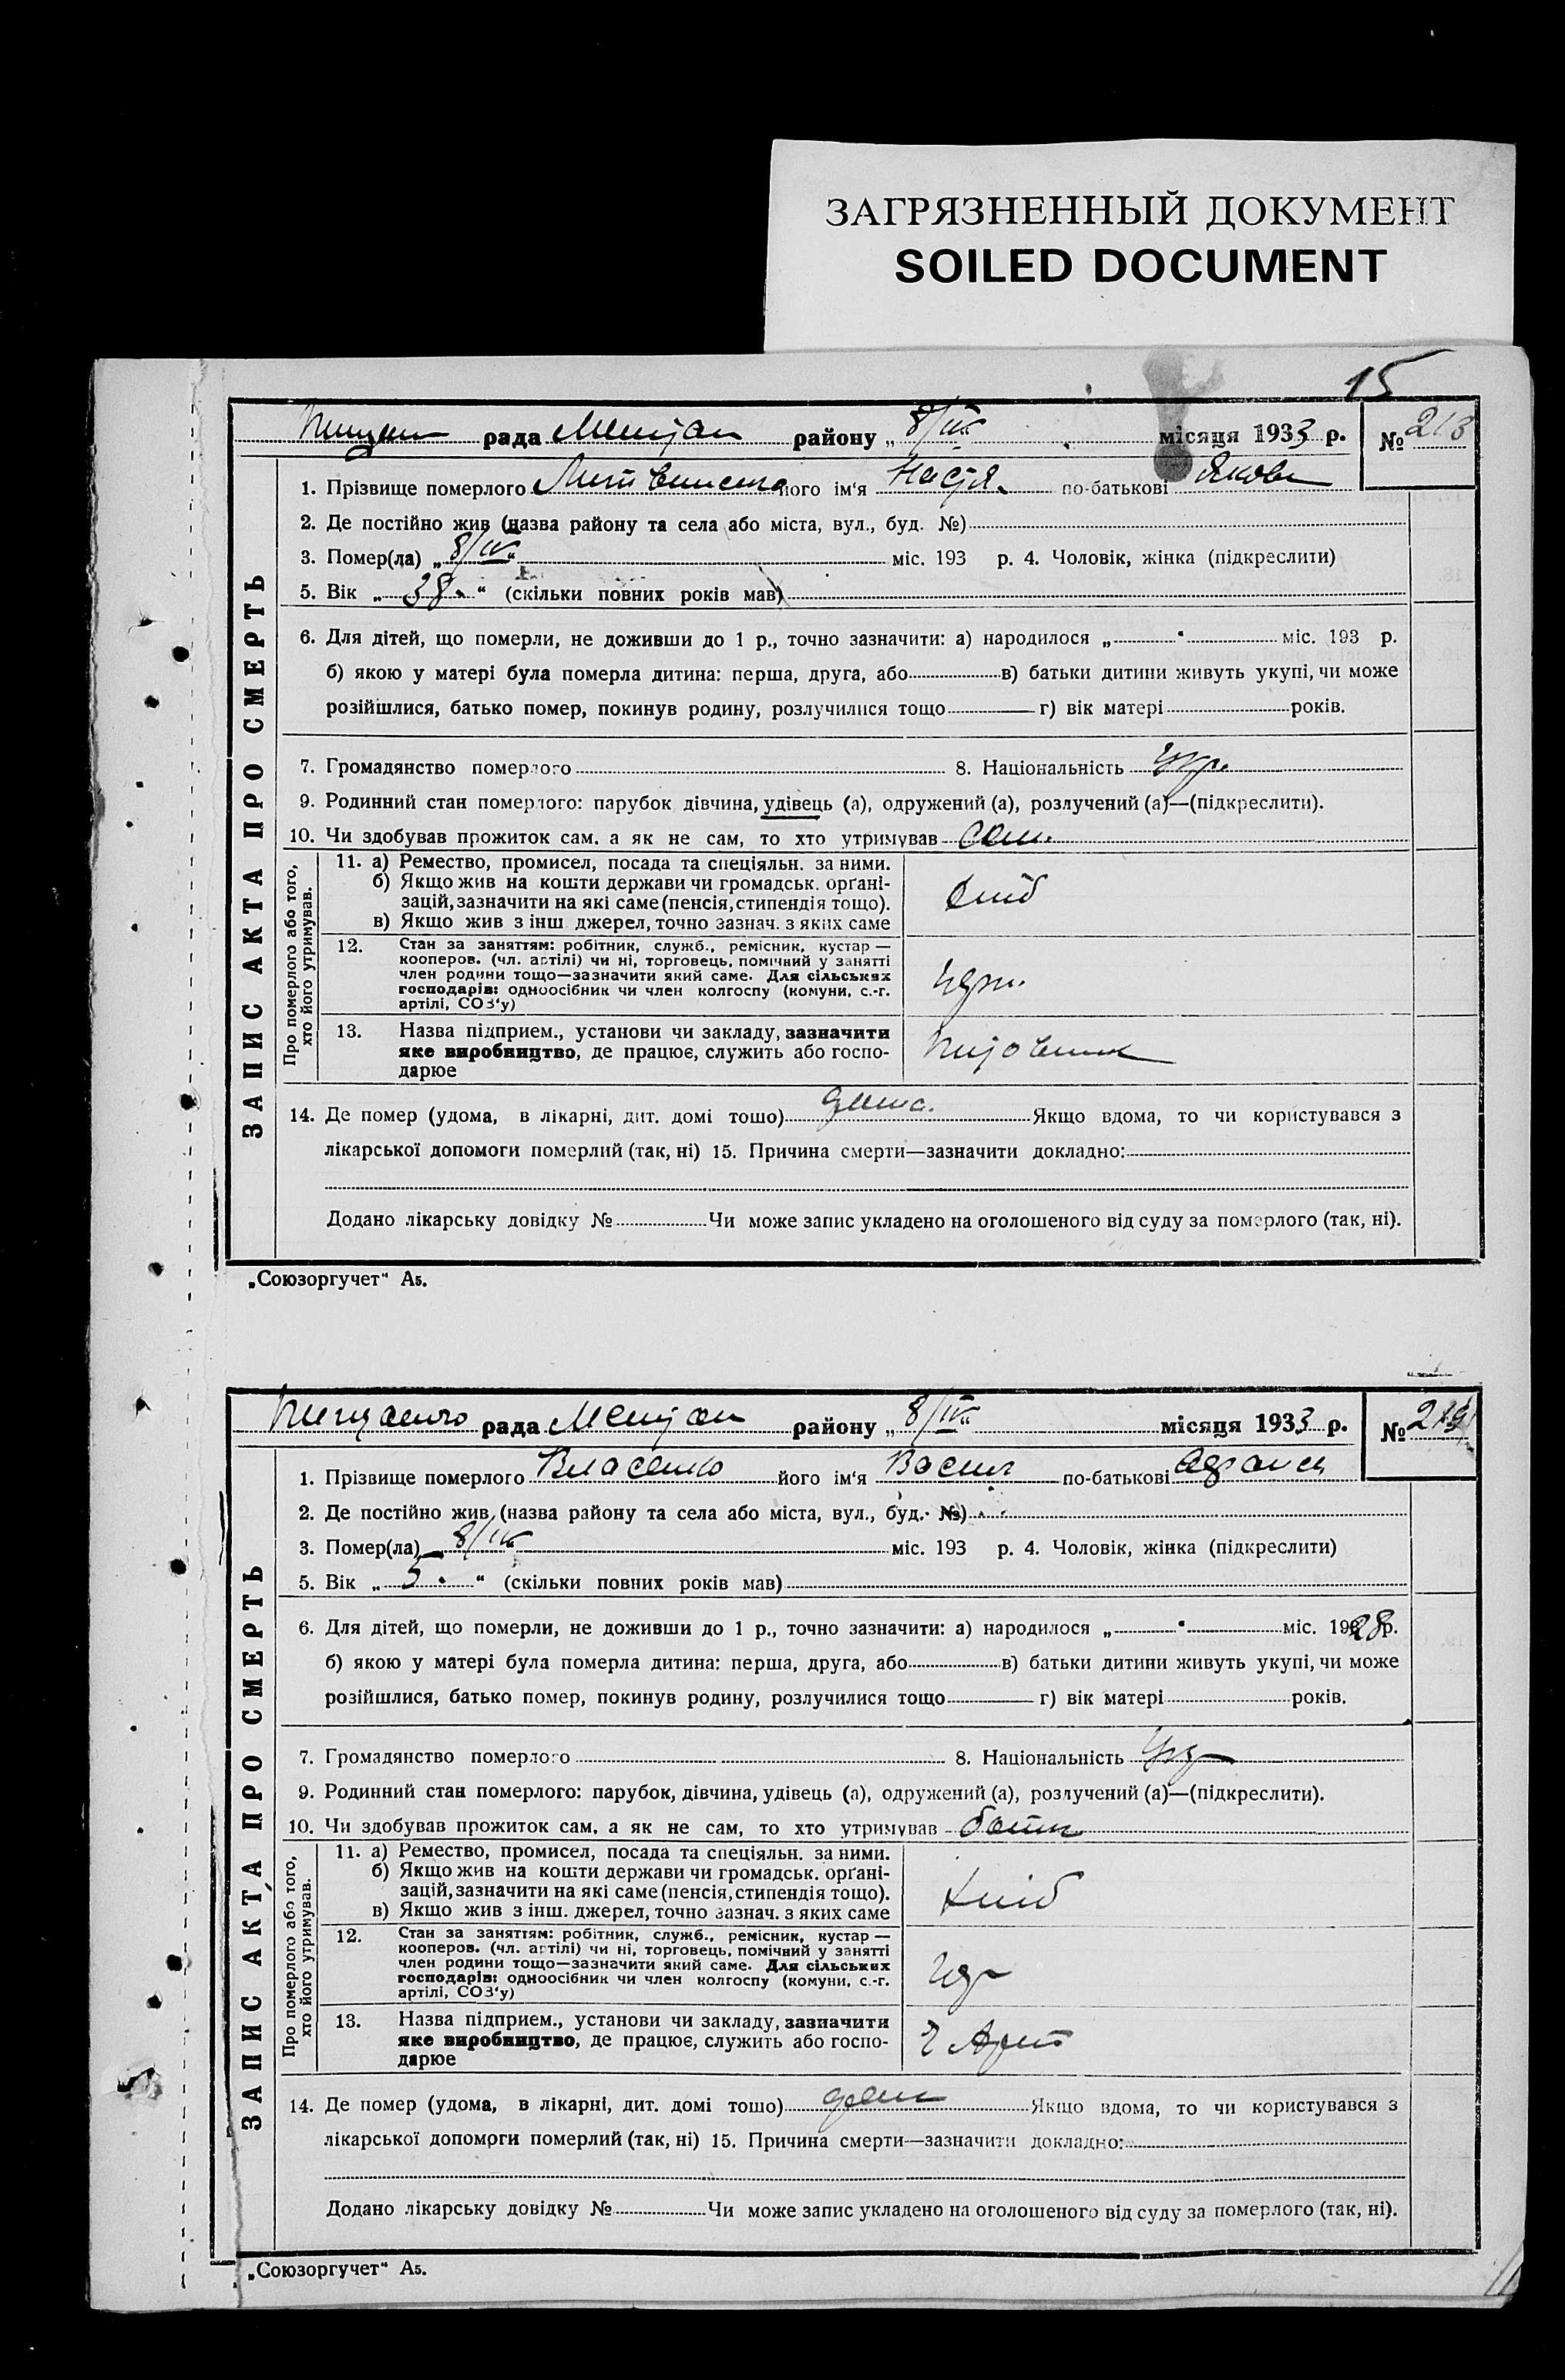 ЗАГРЯЗНЕННЫЙ ДОКУМЕНТ
SOILED DOCUMENT
15
рада районy „ 8/IV“ місяця 1933 р. № 213
1. Прізвище померлого його ім‘я Настя по-батькові Якови
2. Де постійно жив (назва району та села або міста, вул., буд. №)
3. Помер(ла) „ 8/IV“ міс. 193 р. 4. Чоловік, жінка (підкреслити)
5. Вік „ 38. “ (скільки повних років мав)
6. Для дітей, що померли, не доживши до 1 р., точно зазначити: а) народилося „ “ міс. 193 р.
б) якою у матері була померла дитина: перша, друга, або в) батьки дитини живуть укупі, чи може
розійшлися, батько помер, покинув родину, розлучилися тощо г) вік матері років.
7. Громадянство померлого 8. Національність Укр.
9. Родинний стан померлого: парубок дівчина, удівець (а), одружений (а), розлучений (а)—(підкреслити).
10. Чи здобував прожиток сам. а як не сам, то хто утримував сам.
ЗАПИС АКТА ПРО СМЕРТЬ
Про померлого або того, хто його утримував.
11. а) Ремество, промисел, посада та спеціяльн. за ними.
б) Якщо жив на кошти держави чи громадськ. орґані-
зацій, зазначити на які саме (пенсія, стипендія тощо).
в) Якщо жив з інш джерел, точно зазнач. з яких саме
хліб
12. Стан за заняттям: робітник, служб., ремісник, кустар —
кооперов. (чл. артілі) чи ні, торговець, помічний у занятті
член родини тощо—зазначити який саме. Для сільських
господарів: одноосібник чи член колгоспу (комуни, с.-г.
артілі, СОЗ‘у)
13. Назва підприєм., установи чи закладу, зазначити
яке виробництво, де працює, служить або госпо-
дарює
14. Де помер (удома, в лікарні, дит. домі тощо) дома. Якщо вдома, то чи користувався з
лікарської допомоги померлий (так, ні) 15. Причина смерти—зазначити докладно:
Додано лікарську довідку № Чи може запис укладено на оголошеного від суду за померлого (так, ні).
„Союзоргучет“ А5.
рада району „ 8/IV“ місяця 1933 р. № 219
1. Прізвище померлого Власенко його ім‘я Васил по-батькові
2. Де постійно жив (назва району та села або міста, вул., буд. №)
3. Помер(ла) 8/IV“ міс. 193 р. 4. Чоловік, жінка (підкреслити)
5. Вік „ 5. “ (скільки повних років мав)
6. Для дітей, що померли, не доживши до 1 р., точно зазначити: а) народилося „ “ міс. 1928 р.
б) якою у матері була померла дитина: перша, друга, або в) батьки дитини живуть укупі, чи може
розійшлися, батько помер, покинув родину, розлучилися тощо г) вік матері років.
7. Громадянство померлого 8. Національність Укр
9. Родинний стан померлого: парубок, дівчина, удівець (а), одружений (а), розлучений (а)—(підкреслити).
10. Чи здобував прожиток сам. а як не сам, то хто утримував батьк
ЗАПИС АКТА ПРО СМЕРТЬ
Про померлого або того, хто його утримував.
11. а) Ремество, промисел, посада та спеціяльн. за ними.
б) Якщо жив на кошти держави чи громадськ. орґані-
зацій, зазначити на які саме (пенсія, стипендія тощо).
в) Якщо жив з інш. джерел, точно зазнач. з яких саме
хліб
12. Стан за заняттям: робітник, служб., ремісник, кустар —
кооперов. (чл. артілі) чи ні, торговець, помічний у занятті
член родини тощо—зазначити який саме. Для сільських
господарів: одноосібник чи член колгоспу (комуни, с.-г.
артілі, СОЗ‘у)
13. Назва підприєм., установи чи закладу, зазначити
яке виробництво, де працює, служить або госпо-
дарює
14. Де помер (удома, в лікарні, дит. домі тощо) дома Якщо вдома, то чи користувався з
лікарської допомоги померлий (так, ні) 15. Причина смерти—зазначити докладно:
Додано лікарську довідку № Чи може запис укладено на оголошеного від суду за померлого (так, ні).
„Союзоргучет“ А5.